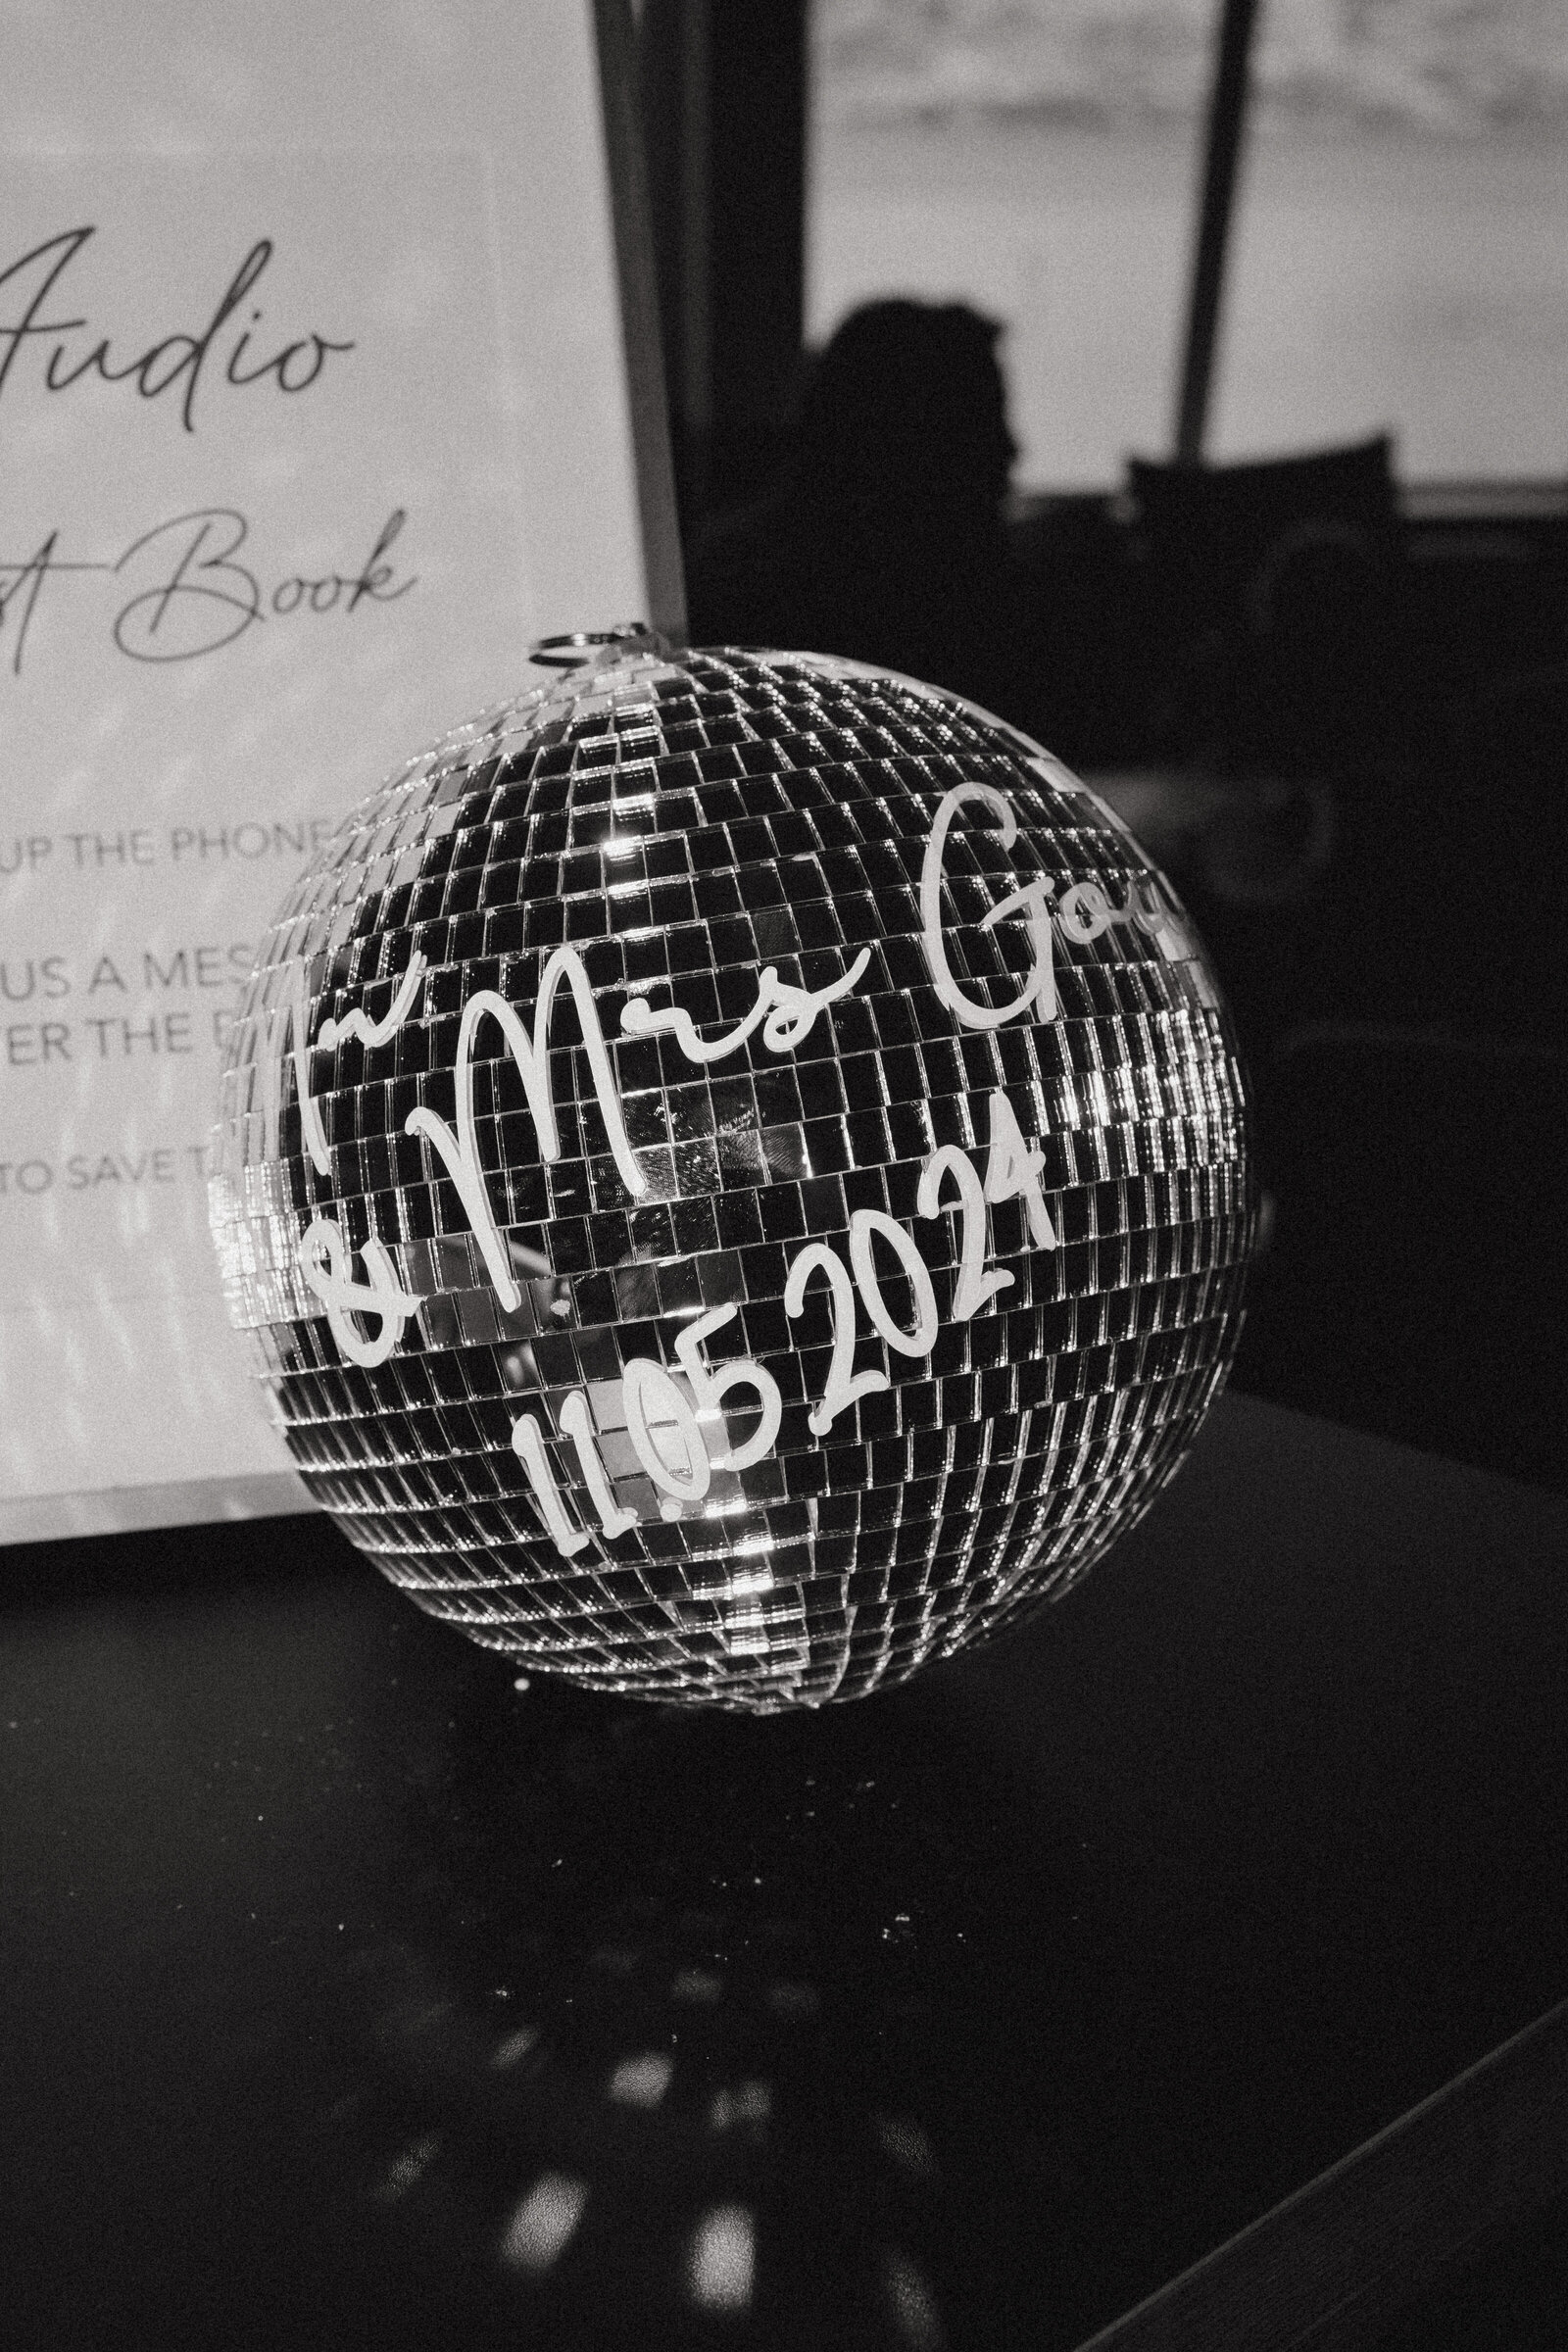 Audio
Book
UP THE PHONE
US A MES
TER THE B
TO SAVE T
Mr
& Mrs Gou
11.05.2024